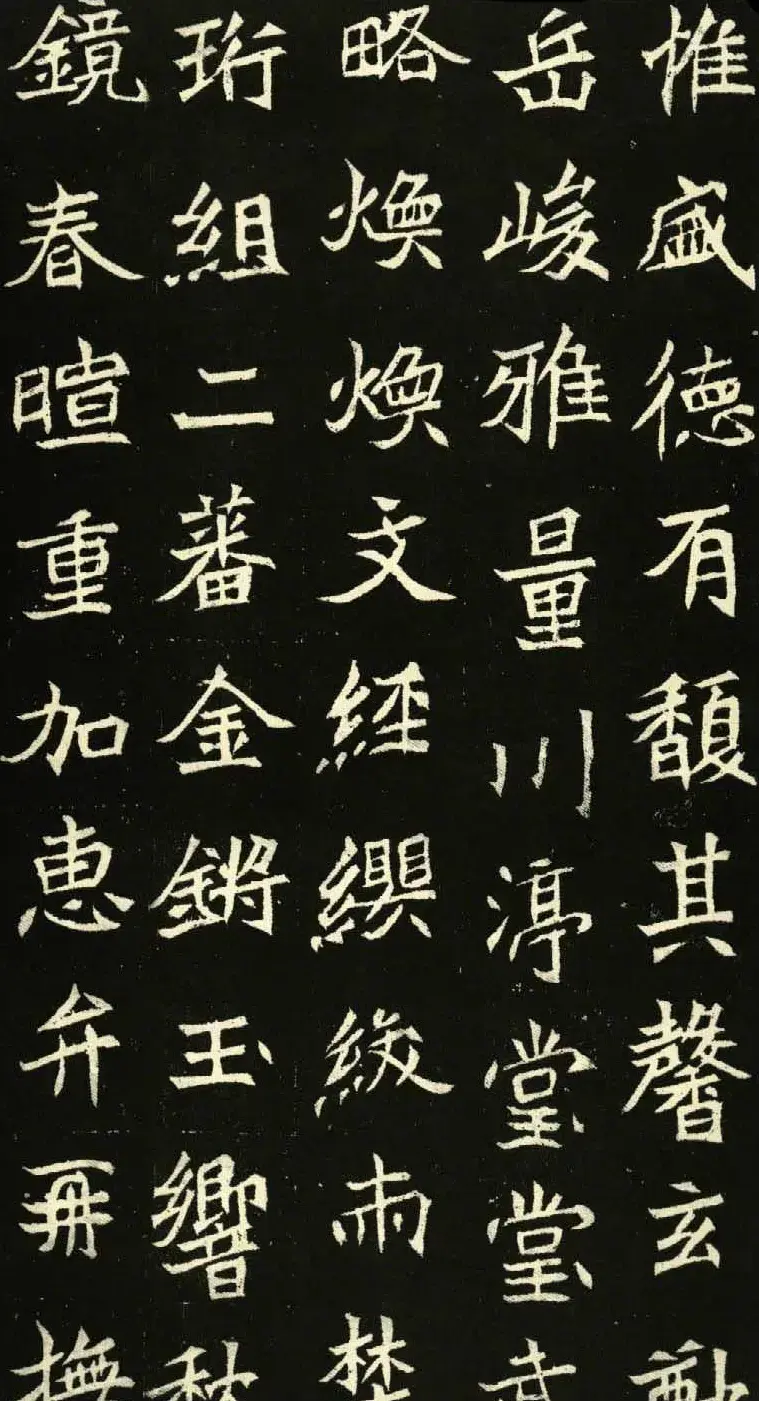 惟盛德有馥其馨玄
岳峻雅量川渟堂堂武
略煥煥文經纓紱兩楚
珩組二蕃金鏘玉響秋
鏡春暄重加惠弁再撫